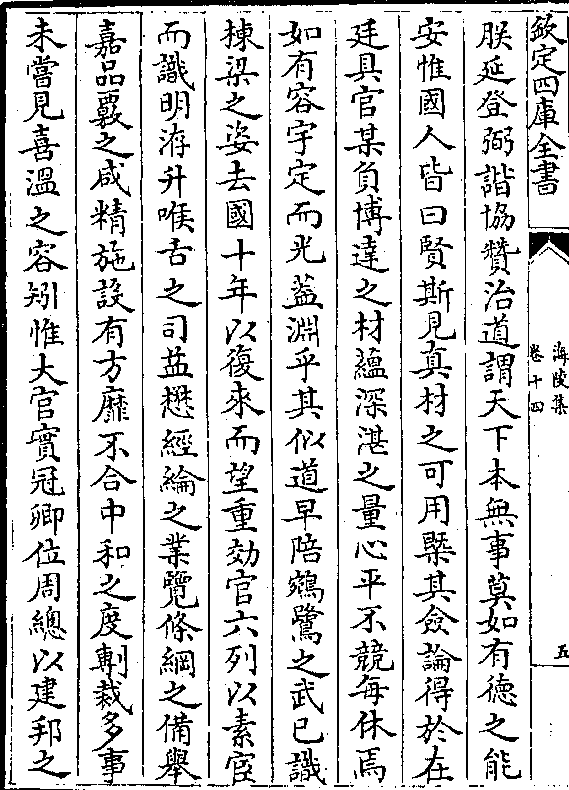 欽定四庫全書
海陵集
卷十四
五
朕延登弼諧協贊治道謂天下本無事莫如有德之能
安惟國人皆曰賢斯見真材之可用槩其僉論得於在
廷具官某負博達之材蘊深湛之量心平不競每休焉
如有容宇定而光蓋淵乎其似道早陪鵷鷺之武已識
棟梁之姿去國十年以復來而望重効官六列以素宦
而識明洊升喉舌之司益懋經綸之業覽條綱之備舉
嘉品覈之咸精施設有方靡不合中和之度剸裁多事
未嘗見喜溫之容矧惟大官實冠卿位周總以建邦之